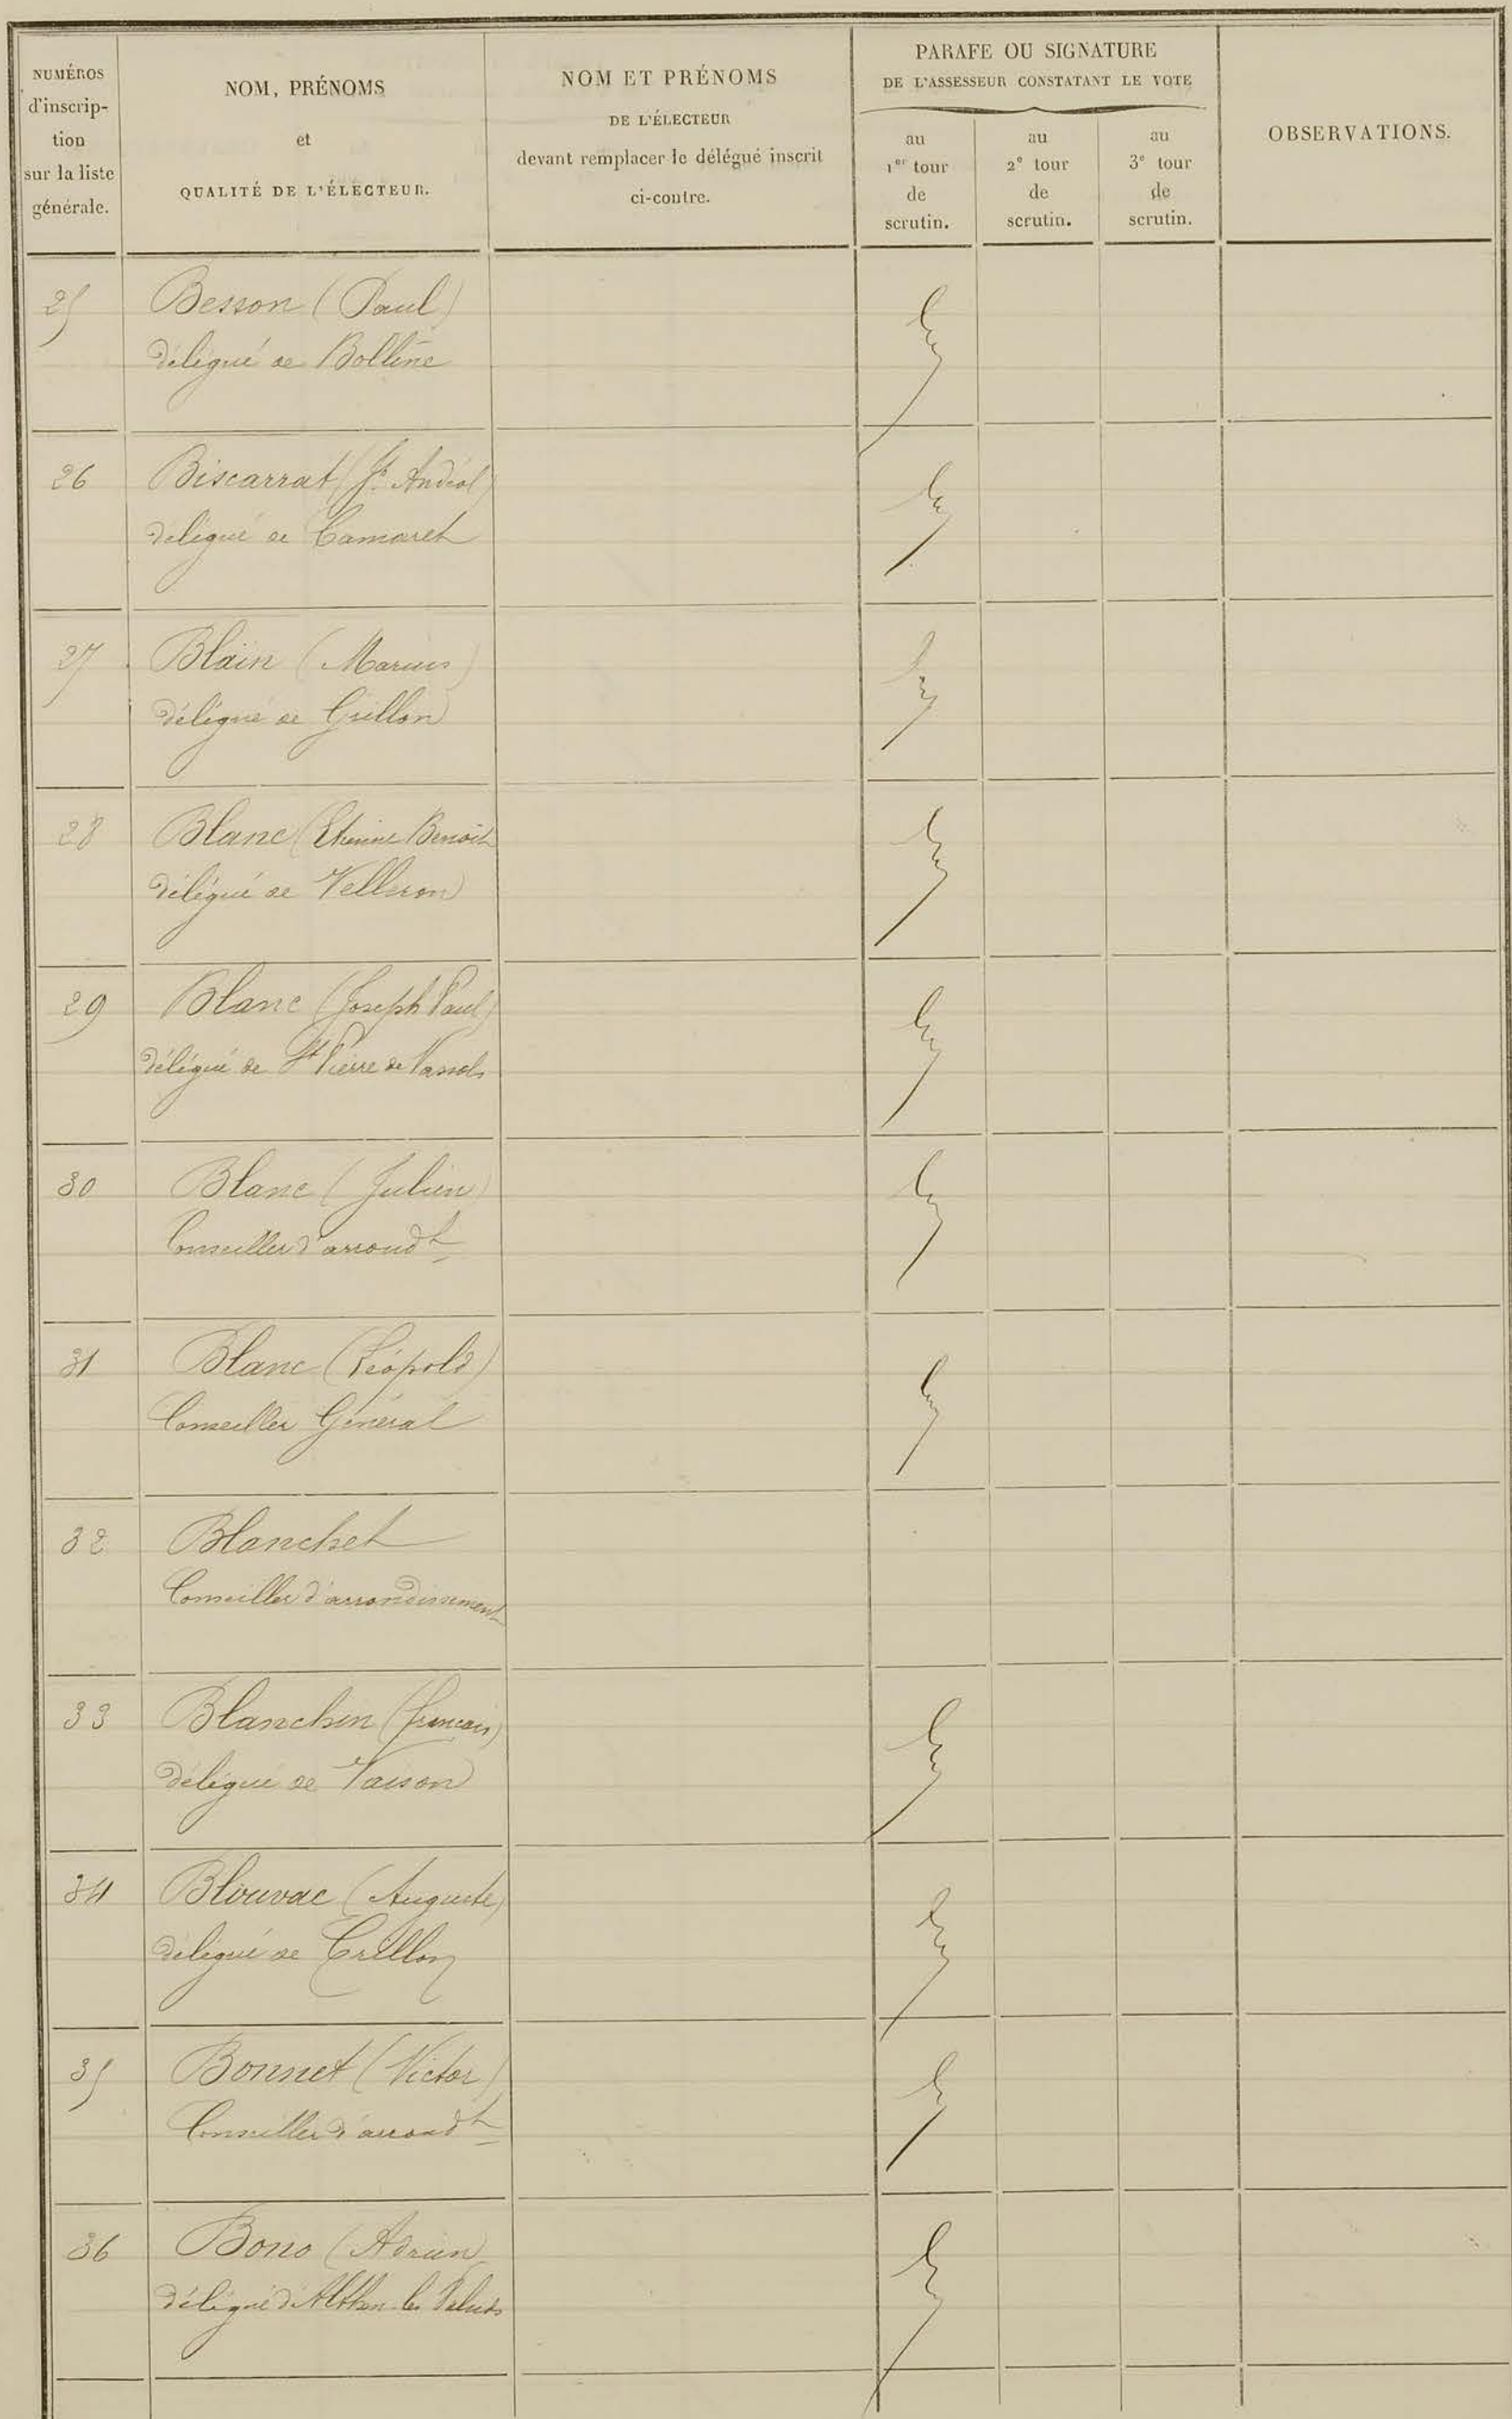 NUMÉROS
d'inscrip-
tion
sur la liste
générale.
NOM, PRÉNOMS
et
QUALITÉ DE L'ÉLECTEUR.
NOM ET PRÉNOMS
DE L'ÉLECTEUR
devant remplacer le délégué inscrit
ci-contre.
PARAFE OU SIGNATURE
DE L'ASSESSEUR CONSTATANT LE VOTE
au
1er tour
de
scrutin.
au
2e tour
de
scrutin.
au
3e tour
de
scrutin.
OBSERVATIONS.
25 Besson (Paul)
délégué de Bollène
26 Biscarrat (Jh Andéol)
délégué de Camaret
27 Blain (Marius)
délégué de Grillon
28 Blanc (Etienne Benoit
délégué de Velleron
29 Blanc (Joseph Paul)
délégué de St Pierre de Vassols
30 Blanc (Julien)
Conseiller d'arrondt
31 Blanc (Léopold)
Conseiller Général
32 Blanchet
Conseiller d'arrondissement
33 Blanchin (français)
délégué de Vaison
34 Blouvac (Auguste)
délégué de Crillon
35 Bonnet (Victor)
Conseiller d'arrondt
36 Bono (Adrien
délégué d'Althen-les Paluds